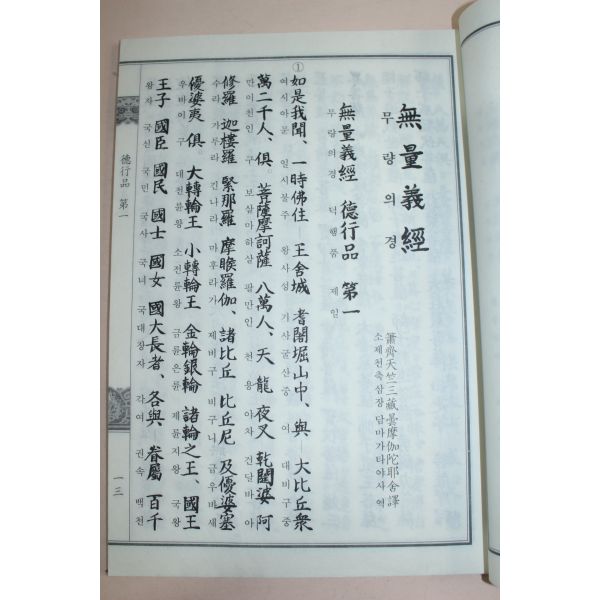 無量義經
무량의경
無量義經 德行品 第一
무량의경 덕행품 제일
簫齊天竺三藏曇摩伽陀耶舍譯
소제천축삼장담마가타야사역
①
如是我聞、一時佛住 王舍城 耆闍堀山中、與 大比丘衆
여시아문 일시불주 왕사성 기사굴산중 여 대비구중
萬二千人、俱。菩薩摩訶薩 八萬人、天 龍 夜叉 乾闥婆 阿
만이천인 구 보살마하살 팔만인 천 용 야차 건달바 아
修羅 迦樓羅 緊那羅 摩睺羅伽、諸比丘 比丘尼 及優婆塞
수라 가루라 긴나라 마후라가 제비구 비구니 급우바새
優婆夷 俱。大轉輪王 小轉輪王 金輪銀輪 諸輪之王、國王
우바이 구 대전륜왕 소전륜왕 금륜은륜 제륜지왕 국왕
王子 國臣 國民 國士 國女 國大長者、各與 眷屬 百千
왕자 국신 국민 국사 국녀 국대장자 각여 권속 백천
德行品 第一
一三